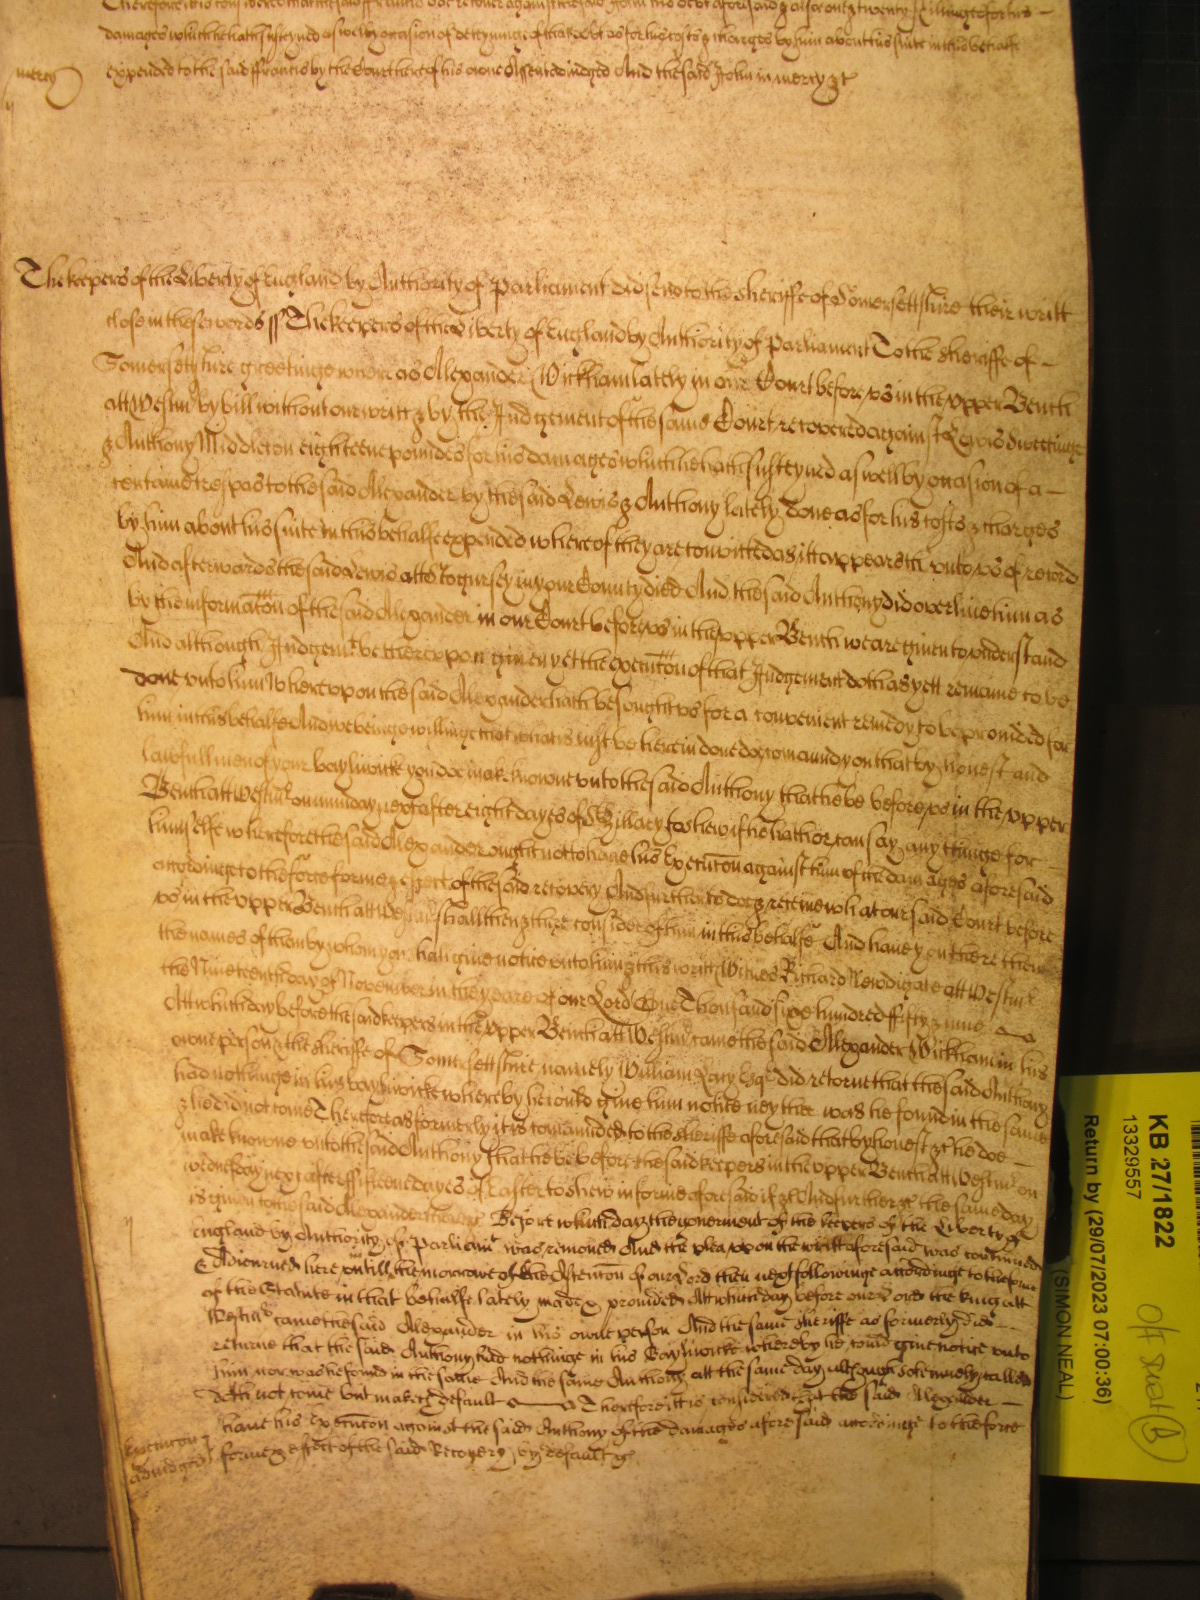 Therefore it is considered that the said ffrancis doe recover against the said John his debt aforesaid & alsoe one & twenty shillinges for his
damages which he hath susteyned aswell by occasion of deteyninge of that debt as for his costs & charges by him about his suite in this behalfe
expended to the said ffrancis by the Court here of his owne Assent adiudged And the said John in mercy &c
mercy
The keepers of the Liberty of England by Authority of Parliament did send to the sheriffe of Somersettshire their writt
close in these words ss The keepers of the Liberty of England by Authority of Parliament To the sheriffe of
Somersetshire greetinge whereas Alexander Wickham lately in our Court before us in the upper Bench
att Westmr by bill without our writt & by the Judgement of the same Court recovered against Lewis Sweetinge
& Anthony Middleton eighteene poundes for his damages which he hath susteyned aswell by occasion of a
certaine trespas to the said Alexander by the said Lewis & Anthony lately done as for his costs & charges
by him about his suite in this behalfe expended whereof they are convicted as itt appeareth unto us of record
And afterwards the said Lewis att in your County died And the said Anthony did overlive him as
by the informacon of the said Alexander in our Court before us in the upper Bench we are given to understand
And although Judgemt be thereupon given yet the execucon of that Judgement doth as yett remaine to be
done unto him Whereupon the said Alexander hath besought us for a convenient remedy to be provided for
him in this behalfe And we beinge willinge that what is just be herein done doe command you that by honest and
lawfull men of your bayliwick you doe make knowne unto the said Anthony that he be before us in the upper
Bench att Westmr on munday next after eight dayes of St Hillary to shew if he hath or can say any thinge for
himselfe wherefore the said Alexander ought not to have his Execucon against him of the damages aforesaid
accordinge to the force forme & effect of the said recovery And further to doe & receive what our said Court before
us in the upper Bench att Westmr shall then & there consider of him in this behalfe And have you there then
the names of them by whom you shall give notice unto him & this writt Witnes Richard Newdigate att Westmr
the Nineteenth day of November in the yeare of our Lord One Thousand sixe hundred ffifty & nine
Att which day before the said keepers in the upper Bench att Westmr came the said Alexander Wickham in his
owne person & the sheriffe of Somersettshire namely William Lacy Esqr did retorne that the said Anthony
had nothinge in his bayliwicke whereby he could give him notice neyther was he found in the same
& he did not come Therefore as formerly it is commanded to the sheriffe aforesaid that by honest &c he doe
make knowne unto the said Anthony that he be before the said keepers in the upper Bench att Westmr on
wednesday next after fifteene dayes of Easter to shew in forme aforesaid if &c And further &c the same day
is given to the said Alexander there &c Before which day the government of the keepers of the Liberty of
England by Authority of Parliamt was removed And the plea upon the writt aforesaid was continued
& Adiourned here untill the morrowe of the Ascencon of our Lord then next followinge accordinge to the forme
of the Statute in that behalfe lately made & provided Att which day before our Lord the King att
Westmr came the said Alexander in his owne person And the same sheriffe as formerly did
returne that the said Anthony had nothinge in his Bayliwicke whereby he could give notice unto
him nor was he found in the same And the same Anthony att the same day although solemnely called
doth not come but maketh default Therefore it is considered that the said Alexander
have his Execucon against the said Anthony of the damages aforesaid accordinge to the force
forme & effect of the said Recovery by default &c
Execucon
adiudged
KB 27/1822
13329557
Return by (29/07/2023 07:00:36)
(SIMON NEAL)